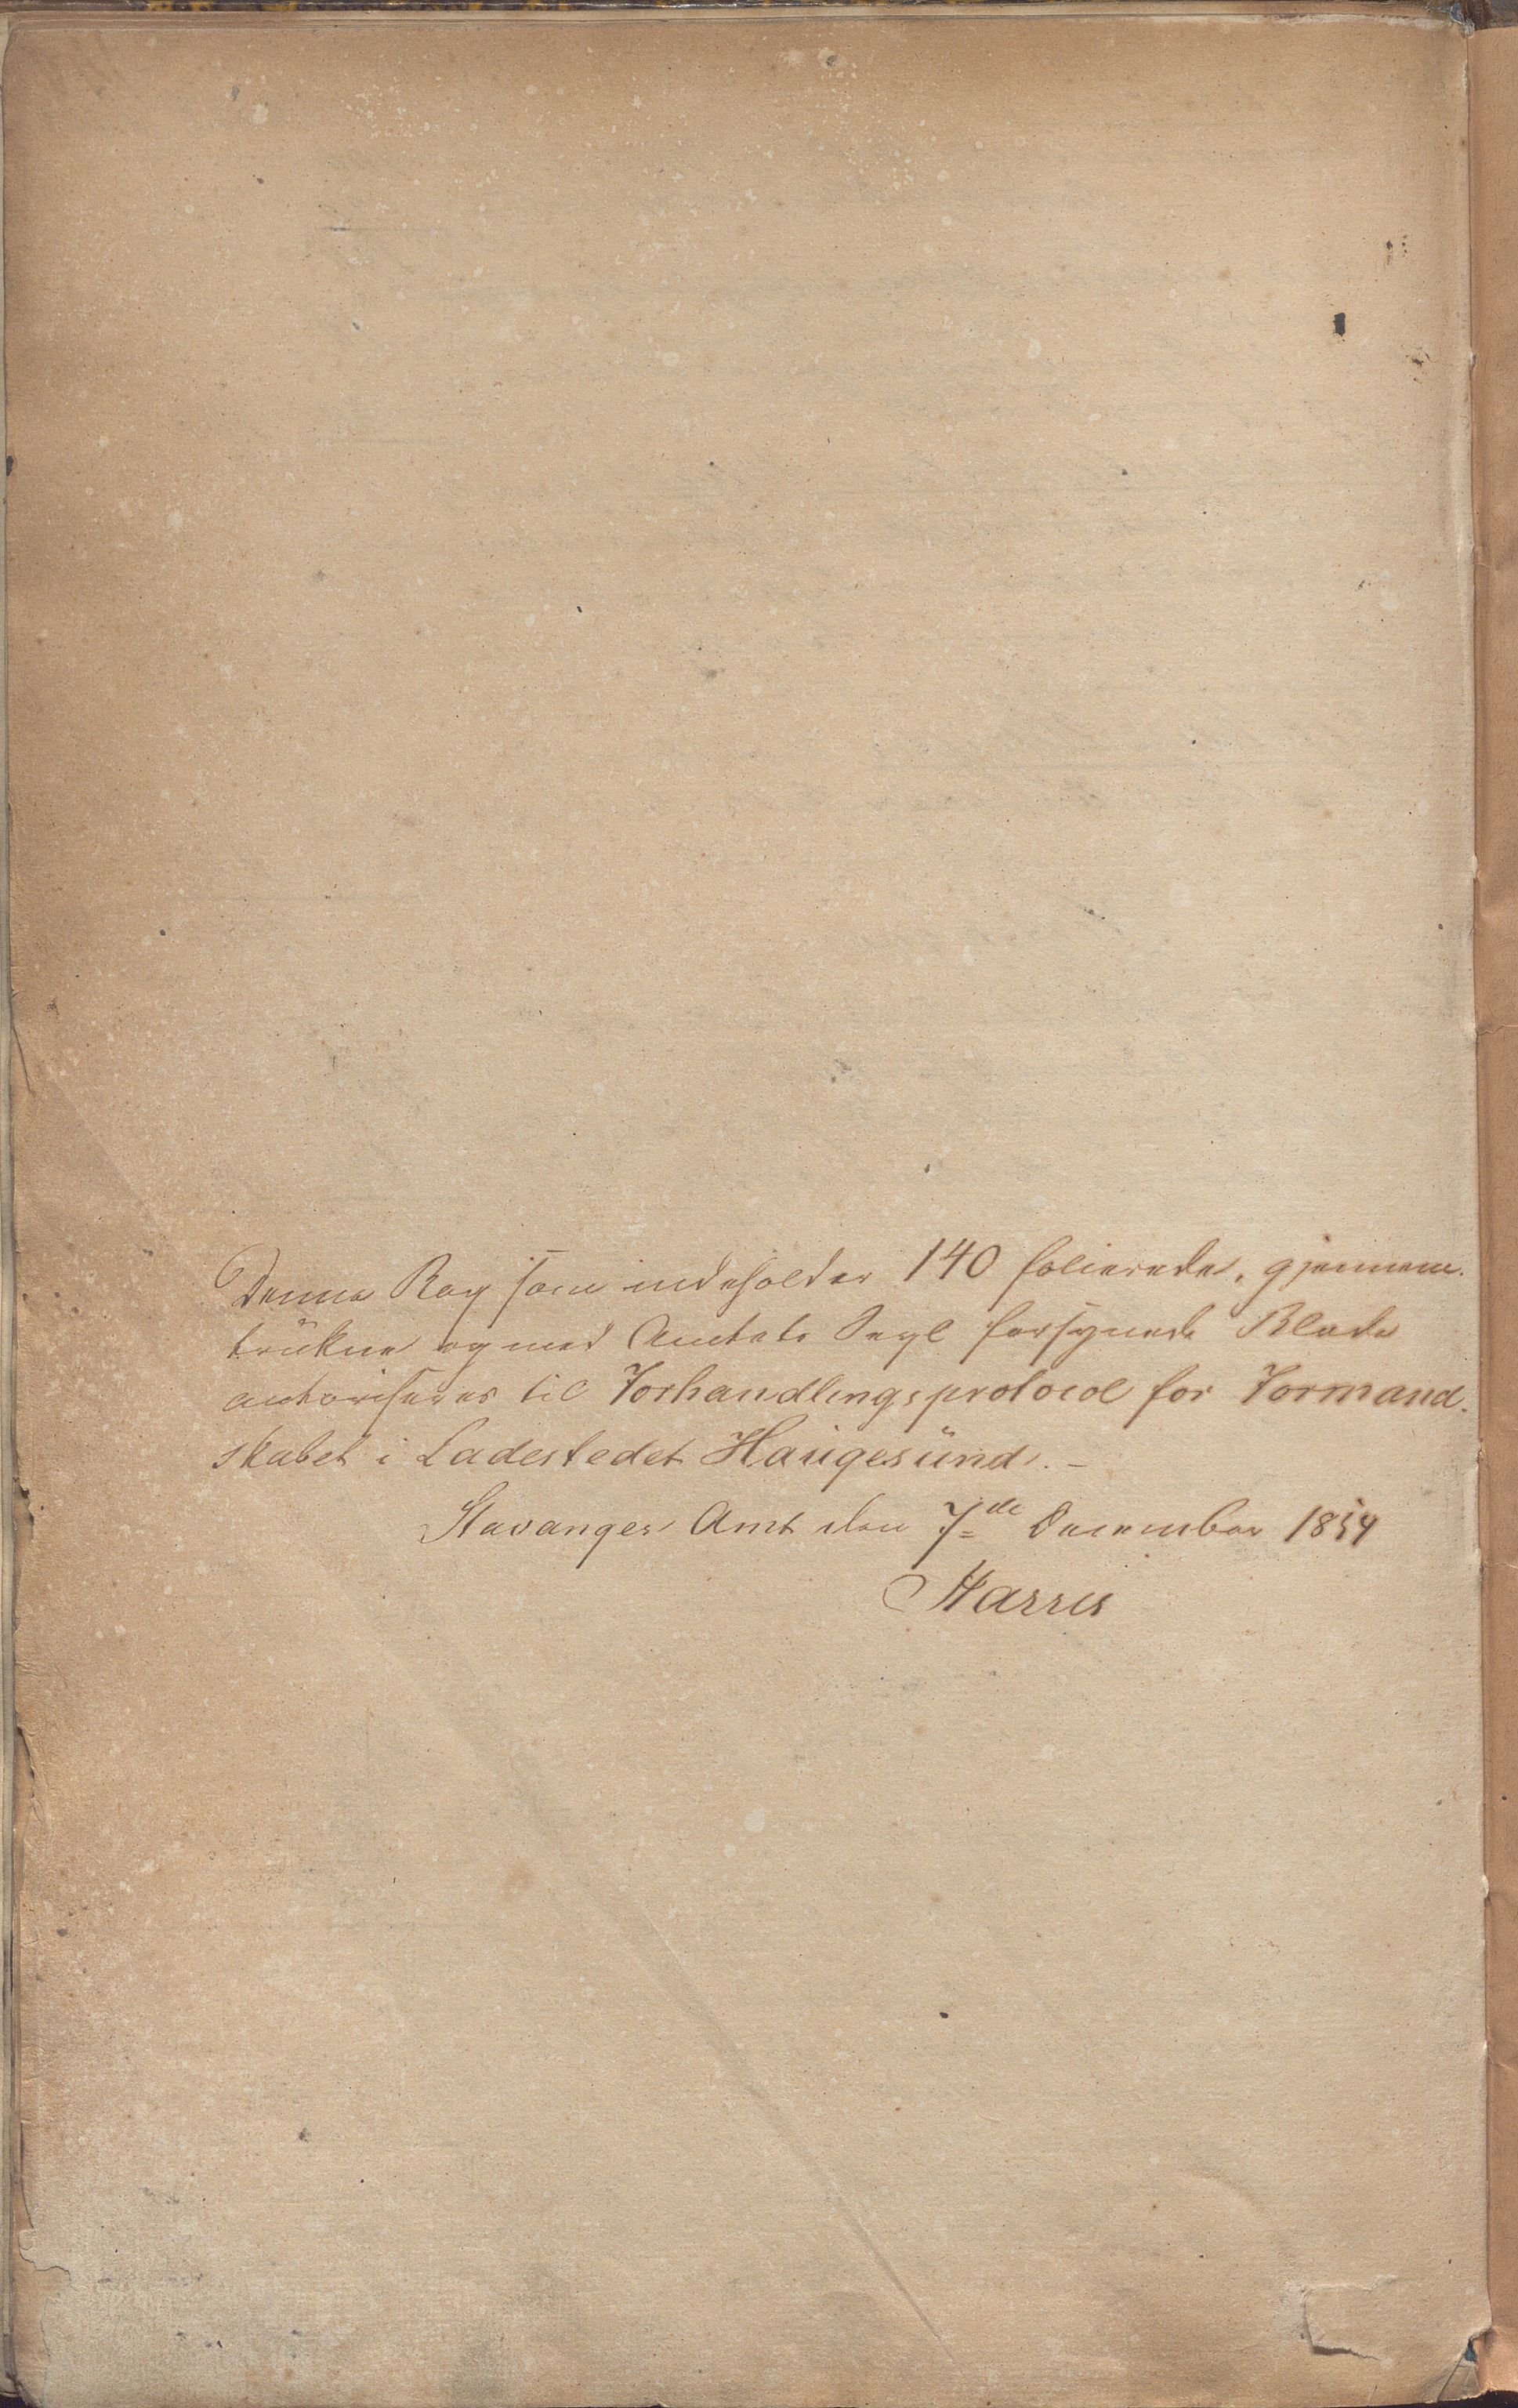 Denne Bog som indeholder 140 folierede, gjennem-
trükne og med Amtets Segl forsynede Blade
autoriseres til Forhandlingsprotocol for Formand-
skabet i Ladestedet Haügesünd. –
Stavanger Amt den 7de December 1854
Harris